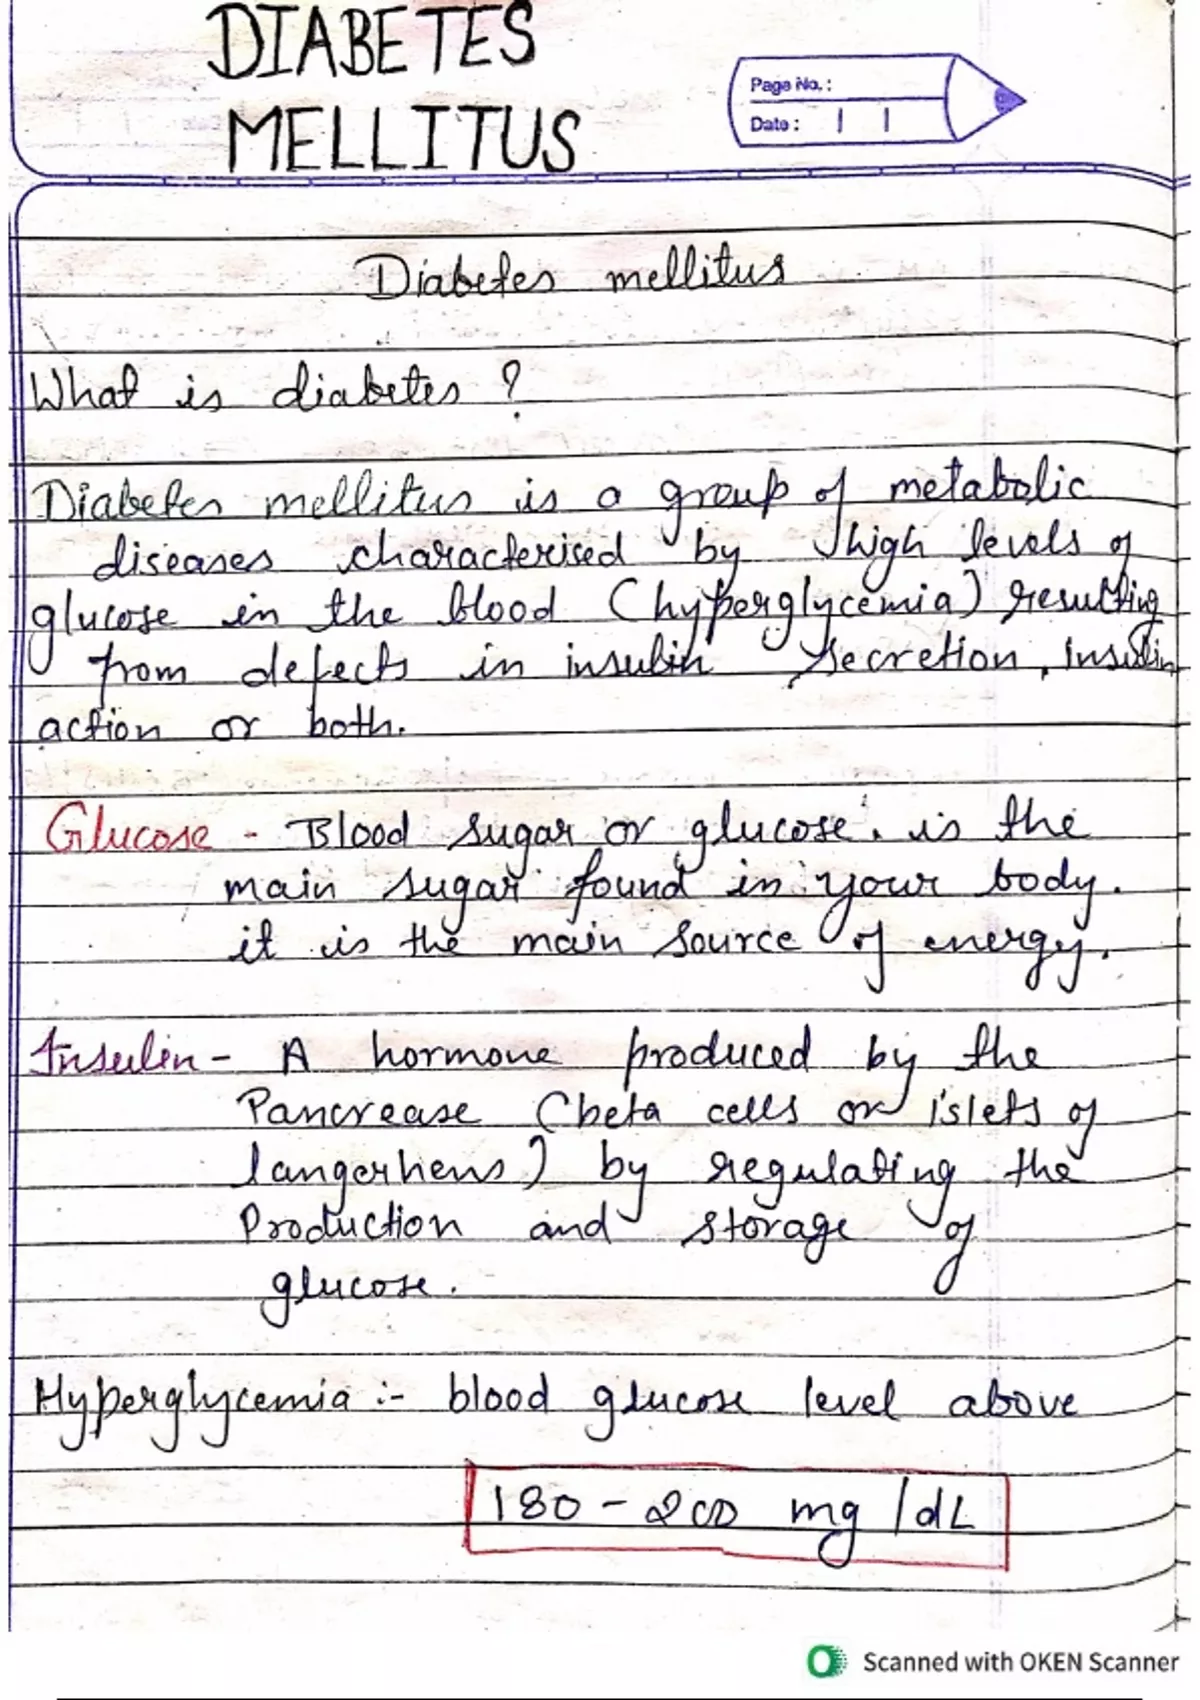 DIABETES
MELLITUS
Page No.:
Date:
Diabetes mellitus
What is diabetes ?
Diabetes mellitus is a group of metabolic
diseases characterised by high levels of
glucose in the blood (hyperglycemia) resulting
from defects in insulin secretion, insulin
action or both.
Glucose - Blood sugar or glucose, is the
main sugar found in your body.
it is the main source of energy.
Insulin - A hormone produced by the
Pancrease (beta cells or islets of
langerhens) by regulating the
Production and storage of
glucose.
Hyperglycemia :- blood glucose level above
180 - 200 mg/dL
Scanned with OKEN Scanner